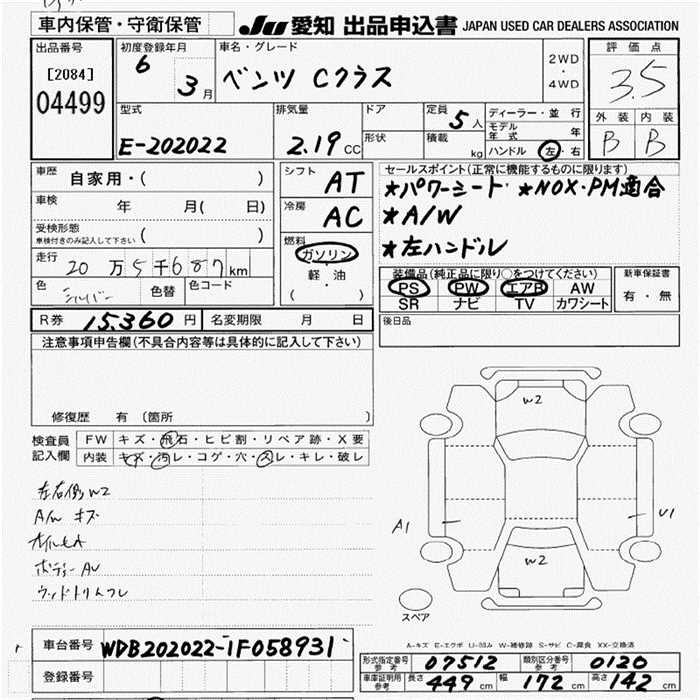 車内保管・守衛保管
JU 愛知 出品申込書 JAPAN USED CAR DEALERS ASSOCIATION
出品番号
[2084]
04499
初度登録年月
6
3月
車名・グレード
ベンツ Cクラス
2WD
・
4WD
評価点
3.5
外装 内装
B B
型式
E-202022
排気量
2.19CC
ドア
形状
定員 5人
積載 kg
ディーラー・並行
モデル年式 年
ハンドル 左・右
車歴 自家用・( )
車検 年 月( 日)
受検形態
車検付きのみ記入して下さい ( )
走行 20万5千687km
色 シルバー 色替 色コード
シフト AT
冷房 AC
燃料
ガソリン
軽・油
( )
セールスポイント(正常に機能するものに限ります)
★パワーシート ★NOX・PM適合
★A/W
★左ハンドル
装備品(純正品に限り○をつけてください)
PS PW エアB AW
SR ナビ TV カワシート
新車保証書
有・無
R券 15.360円 名変期限 月 日
後日品
注意事項申告欄(不具合内容等は具体的に記入して下さい)
修復歴 有 〔箇所
検査員
記入欄
FW キズ・飛石・ヒビ割・リペア跡・X要
内装 キズ・汚レ・コゲ・穴・スレ・キレ・破レ
左右側W2
A/W キズ
オイルモレ
ボディーAU
ウッドトリムフレ
W2
A1
U1
W2
スペア
A-キズ E-エクボ U-凹み W-補修跡 S-サビ C-腐食 XX-交換済
車台番号 WDB202022-1F058931
登録番号
形式指定番号 参考 07512 類別区分番号 参考 0120
車庫証明用 参考 長さ 449cm 幅 172cm 高さ 142cm